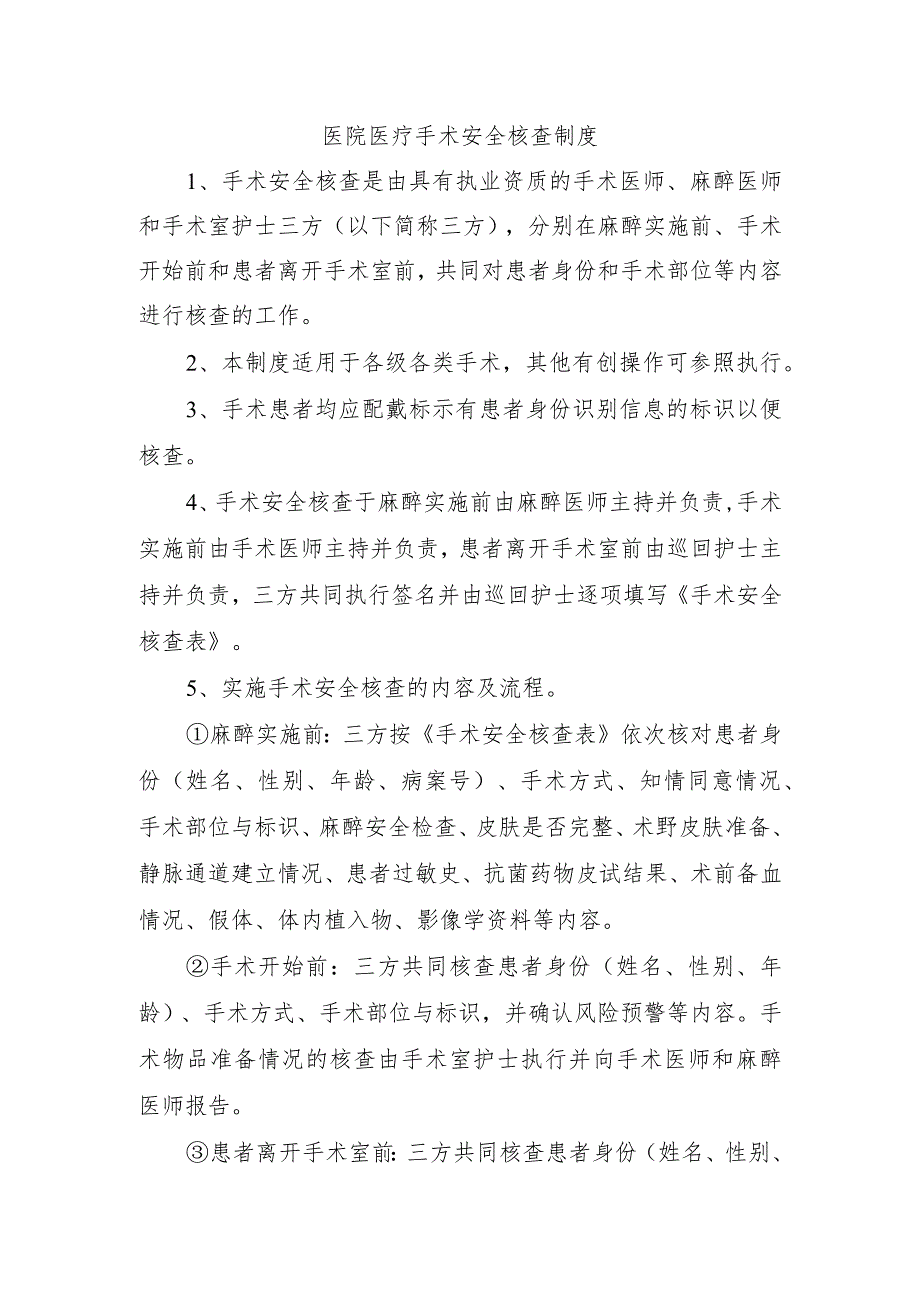 医院医疗手术安全核查制度
1、手术安全核查是由具有执业资质的手术医师、麻醉医师
和手术室护士三方（以下简称三方），分别在麻醉实施前、手术
开始前和患者离开手术室前，共同对患者身份和手术部位等内容
进行核查的工作。
2、本制度适用于各级各类手术，其他有创操作可参照执行。
3、手术患者均应配戴标示有患者身份识别信息的标识以便
核查。
4、手术安全核查于麻醉实施前由麻醉医师主持并负责,手术
实施前由手术医师主持并负责，患者离开手术室前由巡回护士主
持并负责，三方共同执行签名并由巡回护士逐项填写《手术安全
核查表》。
5、实施手术安全核查的内容及流程。
①麻醉实施前：三方按《手术安全核查表》依次核对患者身
份（姓名、性别、年龄、病案号）、手术方式、知情同意情况、
手术部位与标识、麻醉安全检查、皮肤是否完整、术野皮肤准备、
静脉通道建立情况、患者过敏史、抗菌药物皮试结果、术前备血
情况、假体、体内植入物、影像学资料等内容。
②手术开始前：三方共同核查患者身份（姓名、性别、年
龄）、手术方式、手术部位与标识，并确认风险预警等内容。手
术物品准备情况的核查由手术室护士执行并向手术医师和麻醉
医师报告。
③患者离开手术室前：三方共同核查患者身份（姓名、性别、